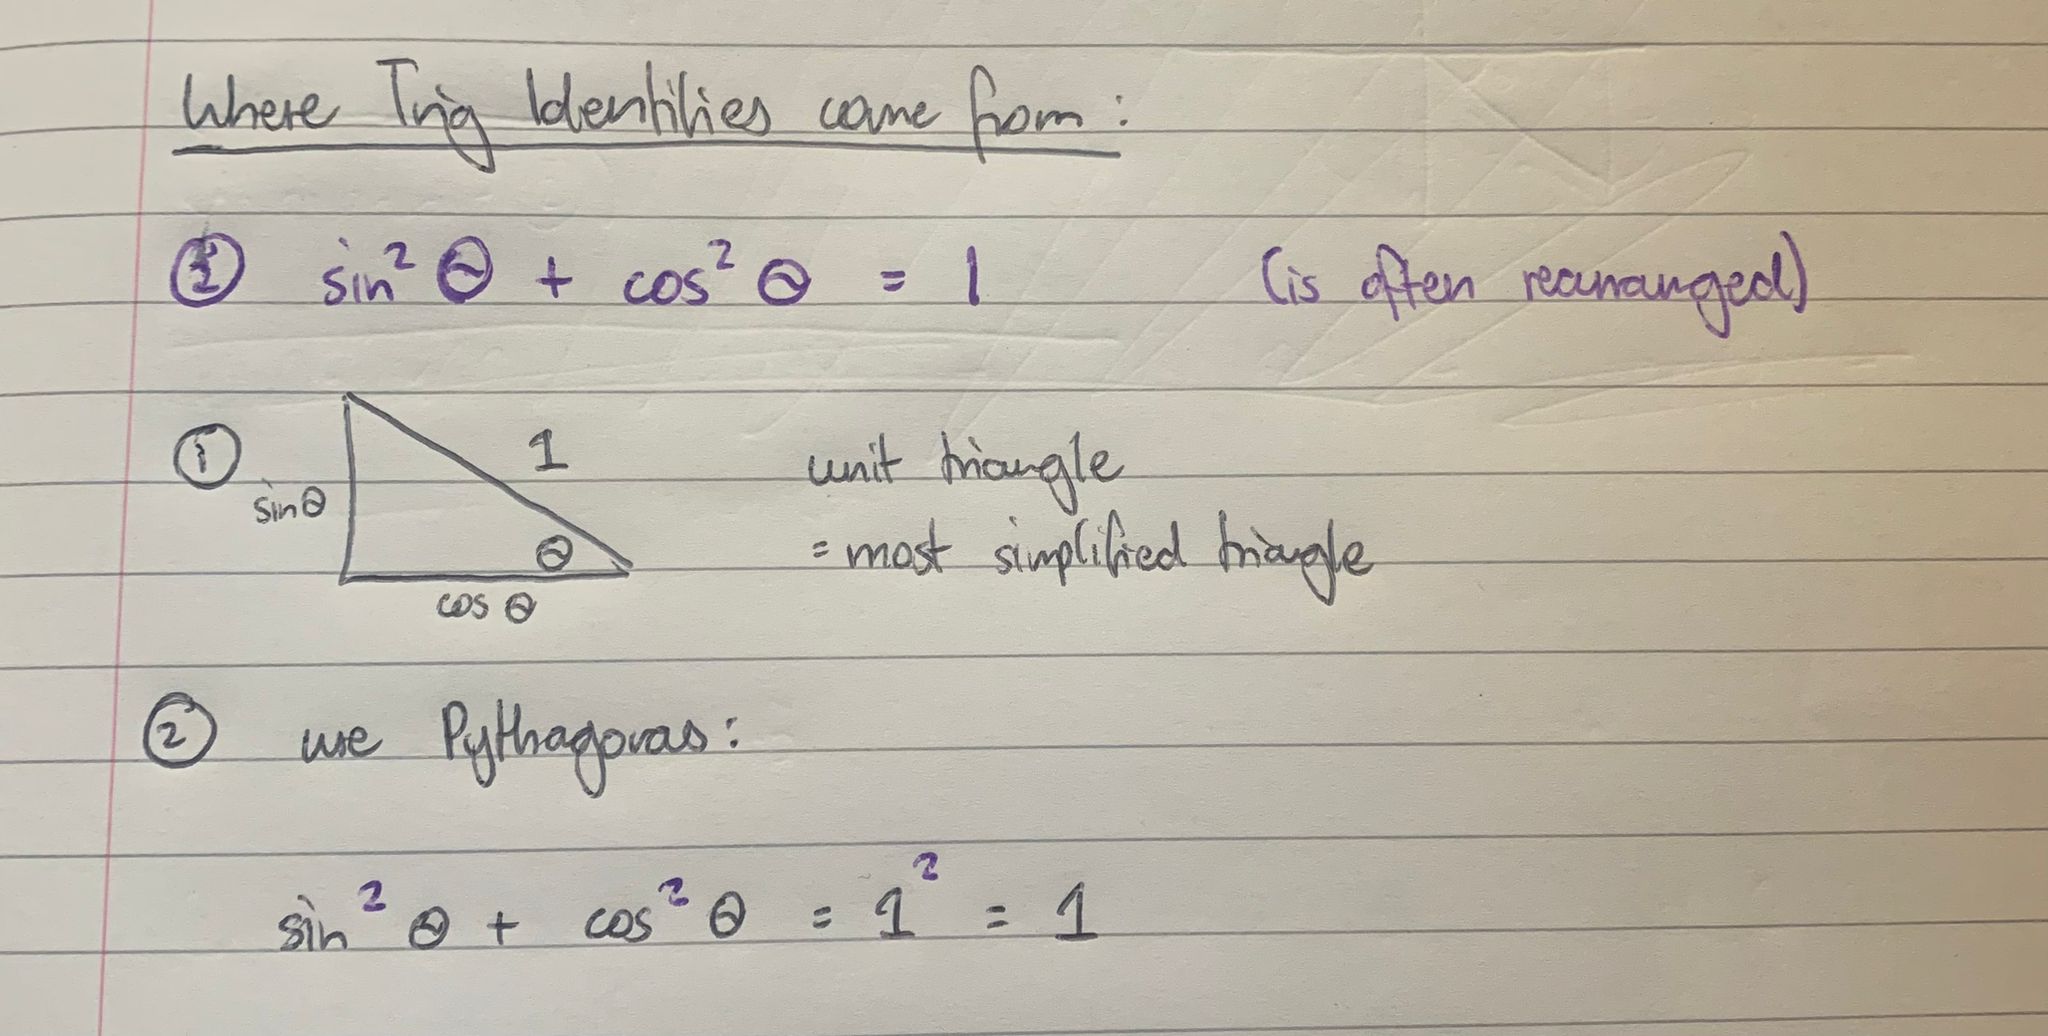 Where Trig Identities come from:
② sin² θ + cos² θ = 1 (is often rearranged)
① 1 unit triangle
sinθ
θ = most simplified triangle
cos θ
② use Pythagoras:
sin² θ + cos² θ = 1² = 1